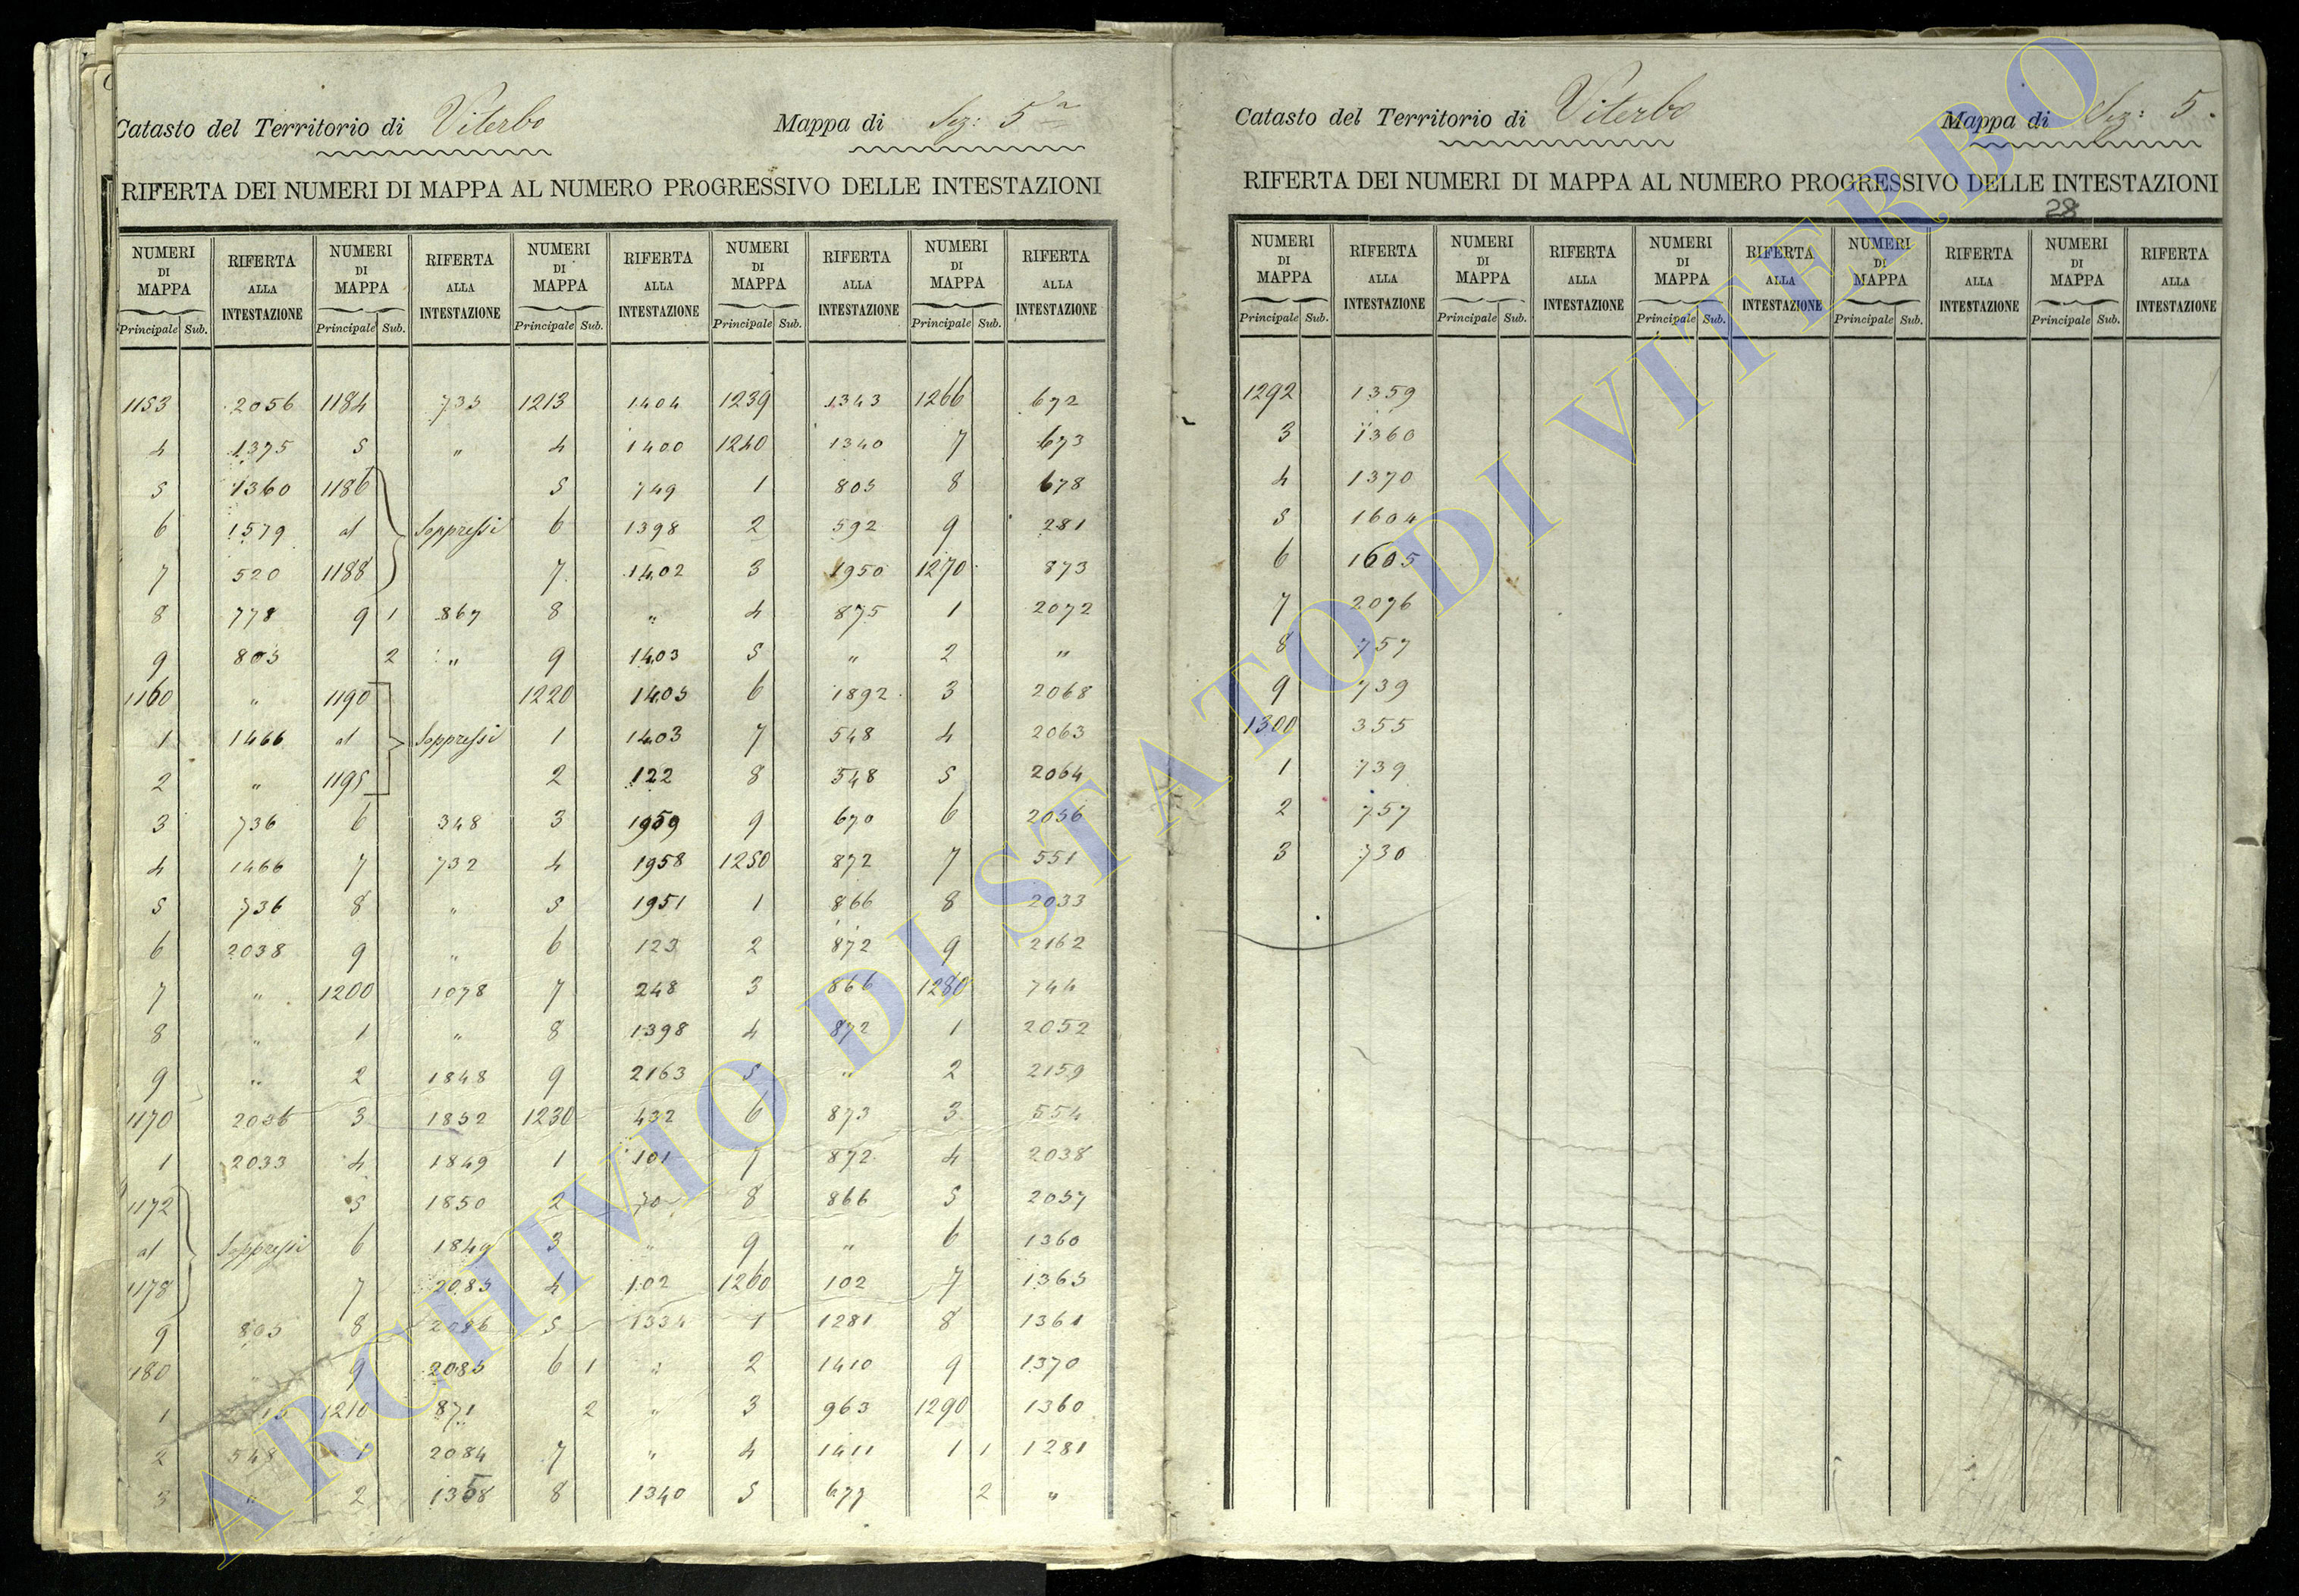 Catasto del Territorio di Viterbo Mappa di Sez: 5a
RIFERTA DEI NUMERI DI MAPPA AL NUMERO PROGRESSIVO DELLE INTESTAZIONI
NUMERI DI MAPPA RIFERTA ALLA INTESTAZIONE NUMERI DI MAPPA RIFERTA ALLA INTESTAZIONE NUMERI DI MAPPA RIFERTA ALLA INTESTAZIONE NUMERI DI MAPPA RIFERTA ALLA INTESTAZIONE NUMERI DI MAPPA RIFERTA ALLA INTESTAZIONE
Principale Sub. Principale Sub. Principale Sub. Principale Sub. Principale Sub.
1153 2056 1184 735 1213 1404 1239 1343 1266 672
4 1375 5 " 4 1400 1240 1340 7 673
5 1360 1186 5 749 1 805 8 678
6 1579 al Soppressi 6 1398 2 592 9 281
7 520 1188 7 1402 3 1950 1270 873
8 778 9 1 867 8 " 4 875 1 2072
9 805 2 " 9 1403 5 " 2 "
1160 " 1190 1220 1405 6 1892 3 2068
1 1466 al Soppressi 1 1403 7 548 4 2063
2 " 1195 2 122 8 548 5 2064
3 736 6 348 3 1959 9 670 6 2056
4 1466 7 732 4 1958 1250 872 7 551
5 736 8 " 5 1951 1 866 8 2033
6 2038 9 " 6 123 2 872 9 2162
7 " 1200 1078 7 248 3 866 1280 744
8 " 1 " 8 1398 4 872 1 2052
9 " 2 1848 9 2163 5 " 2 2159
1170 2036 3 1852 1230 432 6 873 3 554
1 2033 4 1849 1 101 7 872 4 2038
1172 5 1850 2 70 8 866 5 2057
al Soppressi 6 1849 3 " 9 " 6 1360
1178 7 2085 4 102 1260 102 7 1365
9 805 8 2086 5 1334 1 1281 8 1361
180 " 9 2085 6 1 " 2 1410 9 1370
1 1210 871 2 " 3 963 1290 1360
2 548 1 2084 7 " 4 1411 1 1 1281
3 " 2 1358 8 1340 5 677 2 "
Catasto del Territorio di Viterbo Mappa di Sez: 5.
RIFERTA DEI NUMERI DI MAPPA AL NUMERO PROGRESSIVO DELLE INTESTAZIONI
28
NUMERI DI MAPPA RIFERTA ALLA INTESTAZIONE NUMERI DI MAPPA RIFERTA ALLA INTESTAZIONE NUMERI DI MAPPA RIFERTA ALLA INTESTAZIONE NUMERI DI MAPPA RIFERTA ALLA INTESTAZIONE NUMERI DI MAPPA RIFERTA ALLA INTESTAZIONE
Principale Sub. Principale Sub. Principale Sub. Principale Sub. Principale Sub.
1292 1359
3 1360
4 1370
5 1604
6 1605
7 2076
8 757
9 739
1300 355
1 739
2 757
3 730
ARCHIVIO DI STATO DI VITERBO